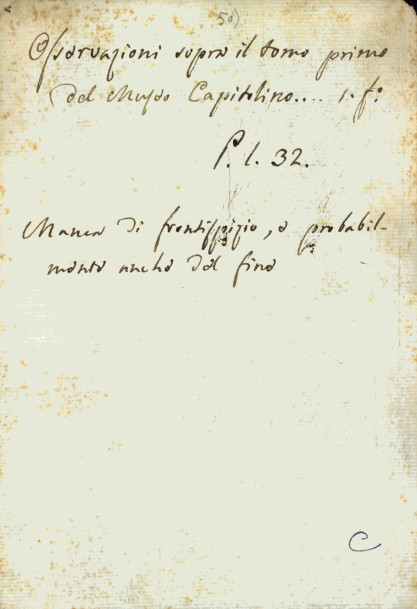 50)
Osservazioni sopra il tomo primo
del Museo Capitolino.... 1. f.o
P. l. 32.
Manca di frontispizio, e probabil-
mente anche del fine
C